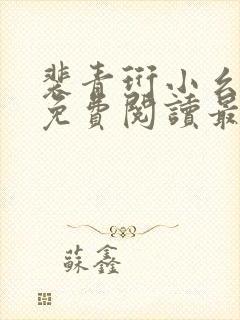 裴青衍小
免費閱讀最
蘇鑫